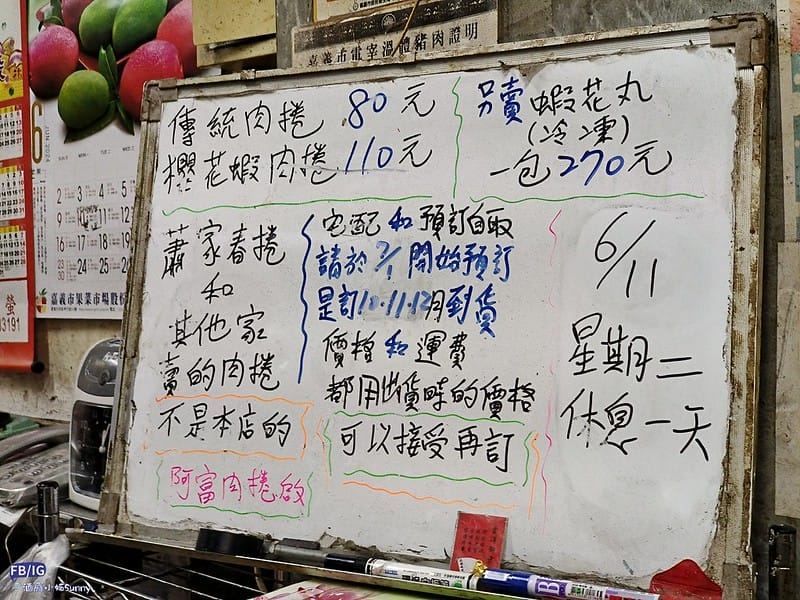 嘉義市電宰溫體豬肉證明
傳統肉捲 80元
櫻花蝦肉捲 110元
另賣蝦花丸
(冷凍)
一包270元
蕭家春捲
和
其他家
賣的肉捲
不是本店的
阿富肉捲啟
宅配和預訂自取
請於7/1開始預訂
是訂10.11.12月到貨
價格和運費
都用出貨時的價格
可以接受再訂
6/11
星期二
休息一天
6
JUN 2024
嘉義市果菜市場股份
3191
FB/IG